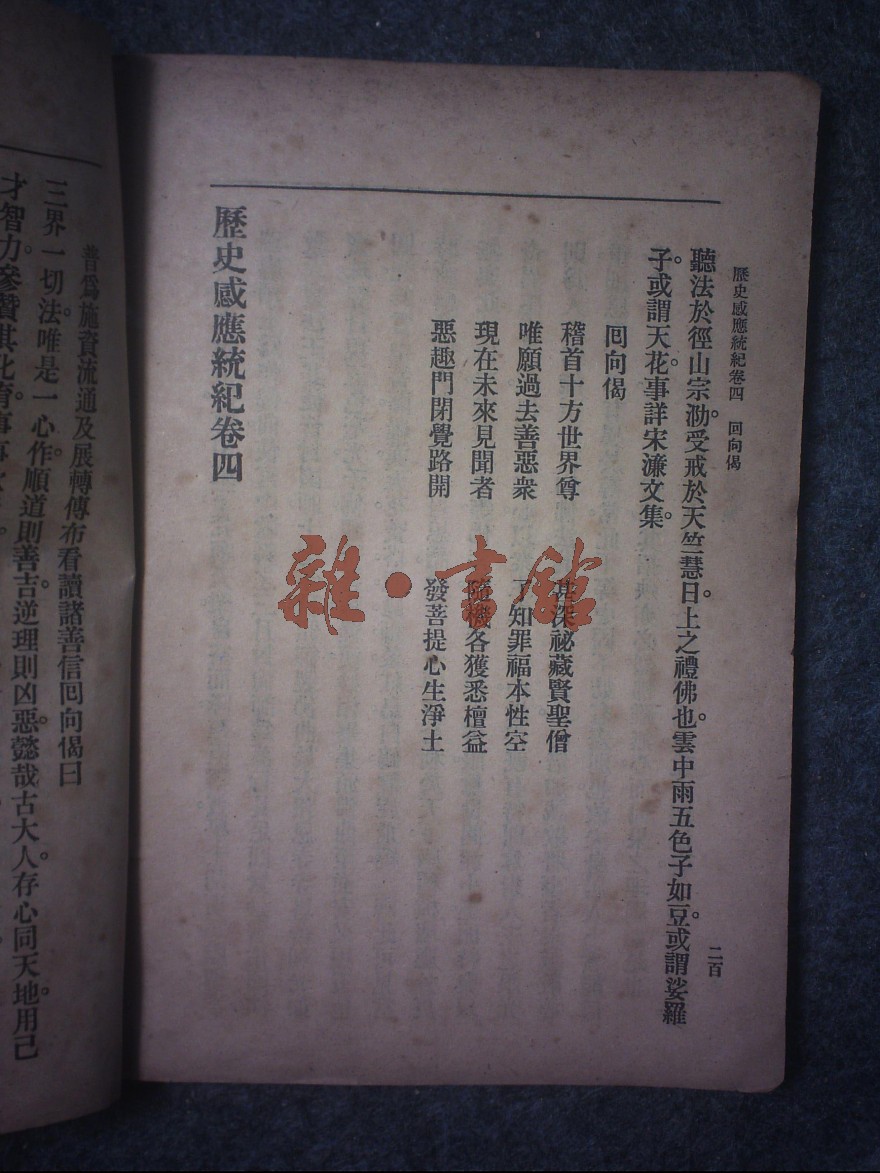 歷史感應統紀卷四　回向偈
二百
聽法於徑山宗泐。受戒於天竺慧日。上之禮佛也。雲中雨五色子如豆。或謂娑羅
子。或謂天花。事詳宋濂文集。
囘向偈
稽首十方世界尊　甚深祕藏賢聖僧
唯願過去善惡衆　了知罪福本性空
現在未來見聞者　隨機各獲悉檀益
惡趣門閉覺路開　發菩提心生淨土
歷史感應統紀卷四
普爲施資流通及展轉傳布看讀諸善信囘向偈曰
三界一切法。唯是一心作。順道則善吉。逆理則凶惡。懿哉古大人。存心同天地。用己
才智力。參贊其化育。
雜·書館